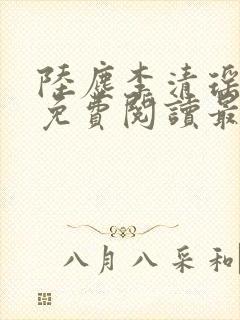 陸塵李清瑶
免費閱讀最
八月八采和